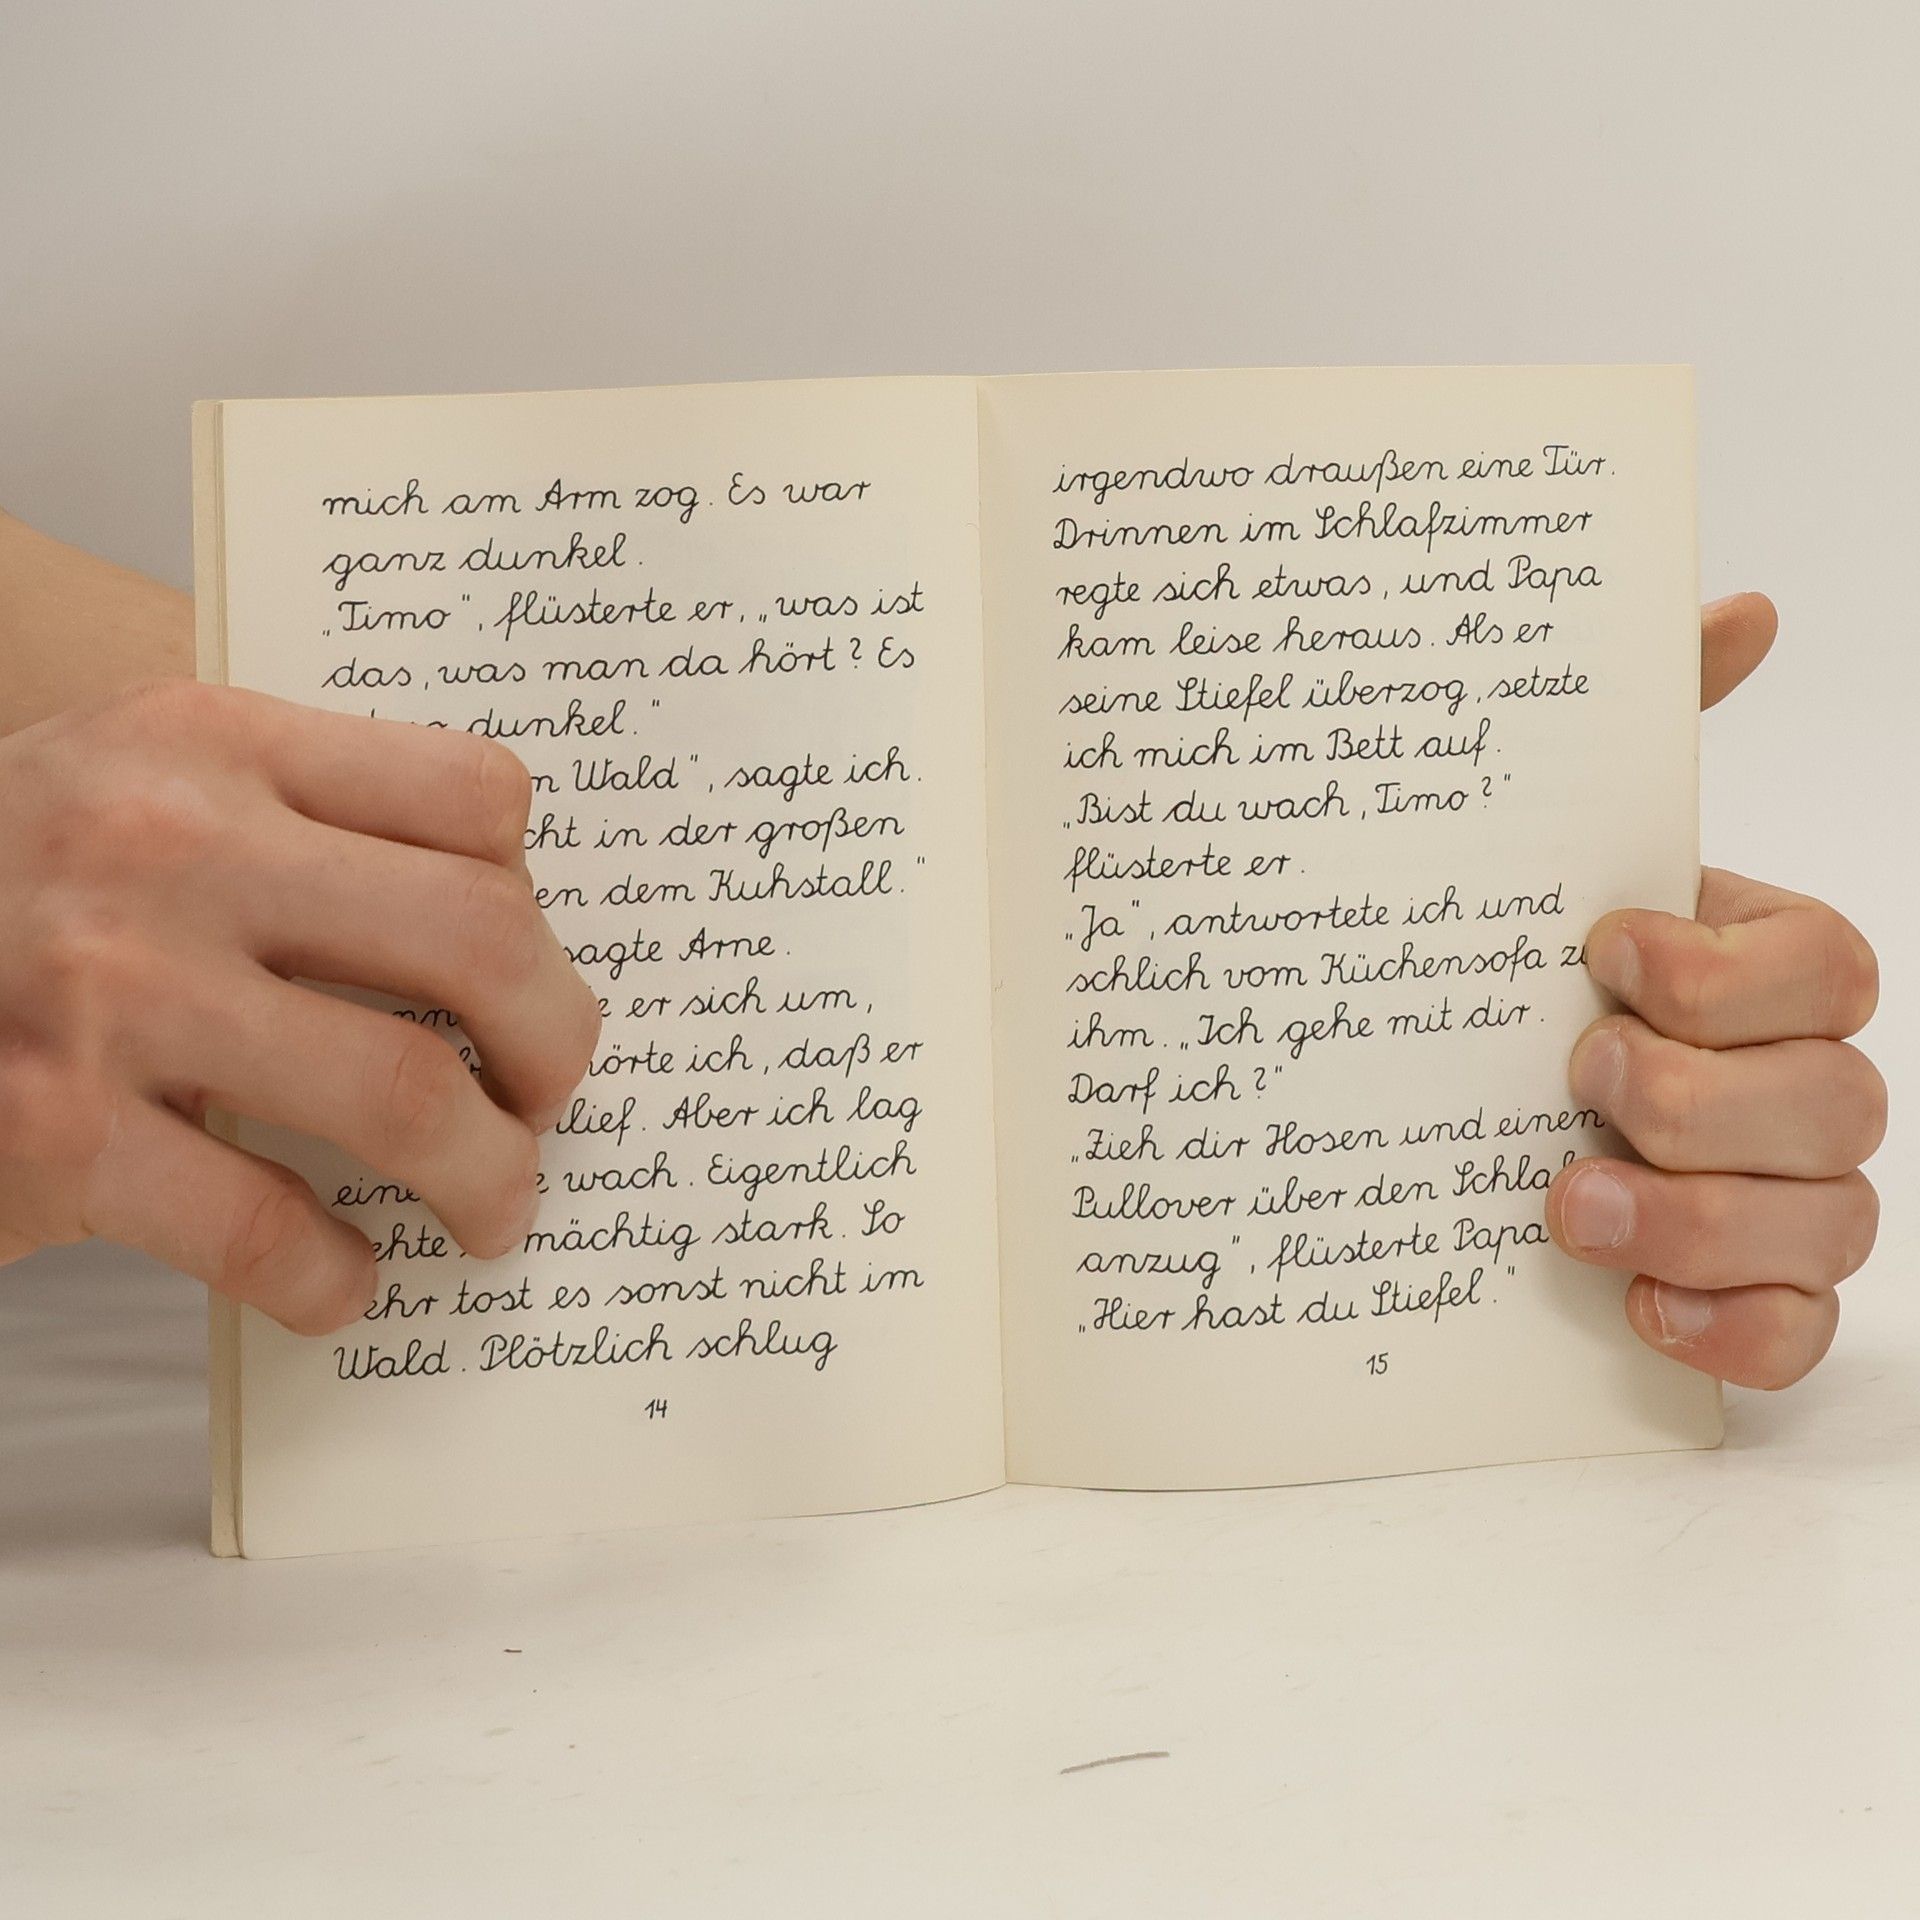 mich am Arm zog. Es war
ganz dunkel.
„Timo“, flüsterte er, „was ist
das, was man da hört? Es
dunkel.“
Wald“, sagte ich.
in der großen
dem Kuhstall.“
sagte Arne.
er sich um,
ich, daß er
Aber ich lag
wach. Eigentlich
mächtig stark. So
tost es sonst nicht im
Wald. Plötzlich schlug
14
irgendwo draußen eine Tür.
Drinnen im Schlafzimmer
regte sich etwas, und Papa
kam leise heraus. Als er
seine Stiefel überzog, setzte
ich mich im Bett auf.
„Bist du wach, Timo?“
flüsterte er.
„Ja“, antwortete ich und
schlich vom Küchensofa zu
ihm. „Ich gehe mit dir.
Darf ich?“
„Zieh dir Hosen und einen
Pullover über den Schlaf
anzug“, flüsterte Papa
„Hier hast du Stiefel.“
15